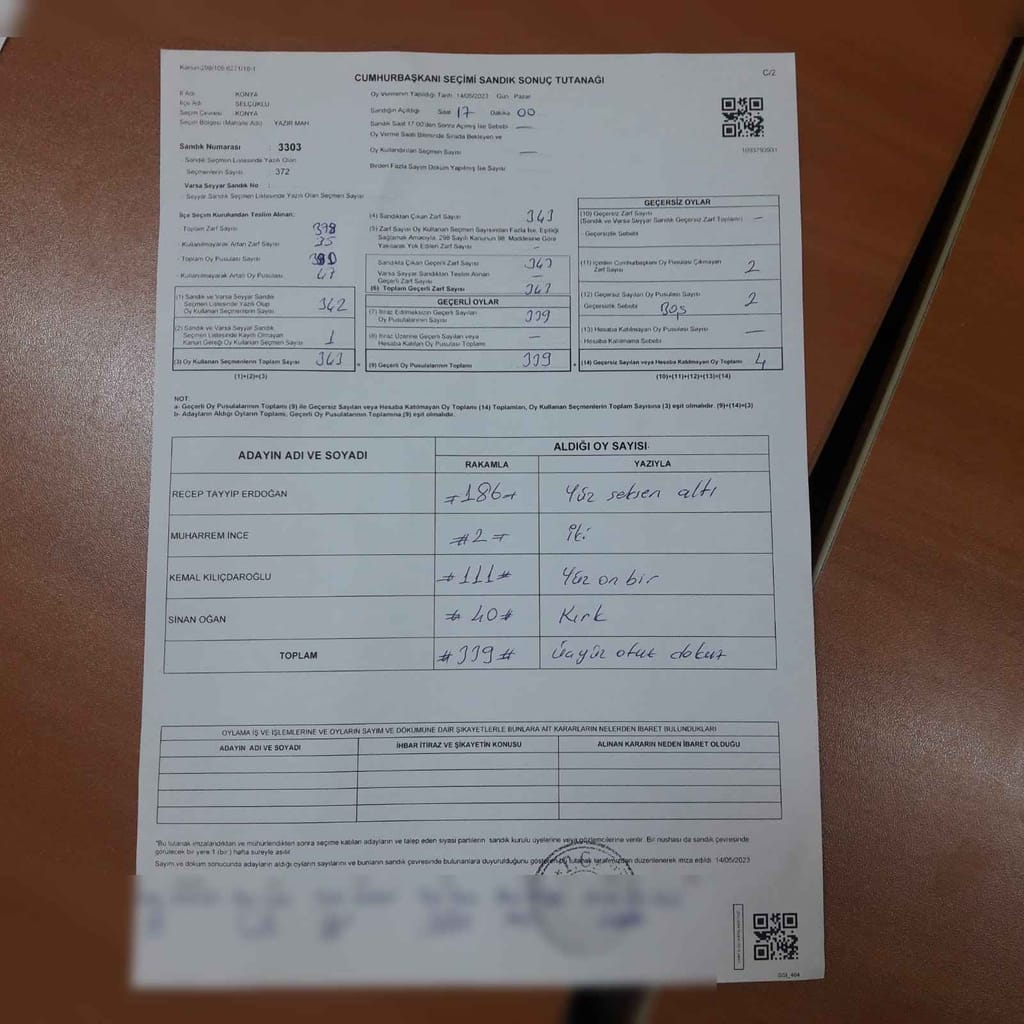 CUMHURBAŞKANI SEÇİMİ SANDIK SONUÇ TUTANAĞI
C/2
İl Adı : KONYA
İlçe Adı : SELÇUKLU
Seçim Çevresi : KONYA
Seçim Bölgesi (Mahalle Adı) : YAZIR MAH
Sandık Numarası : 3303
Sandık Seçmen Listesinde Yazılı Olan
Seçmenlerin Sayısı : 372
Varsa Seyyar Sandık No :
Seyyar Sandık Seçmen Listesinde Yazılı Olan Seçmen Sayısı
Oy Vermenin Yapıldığı Tarih 14/05/2023 Gün : Pazar
Sandığın Açıldığı Saat 17 Dakika 00
Sandık Saat 17.00'den Sonra Açılmış İse Sebebi —
Oy Verme Saati Bitiminde Sırada Bekleyen ve
Oy Kullandırılan Seçmen Sayısı —
Birden Fazla Sayım Döküm Yapılmış İse Sayısı
İlçe Seçim Kurulundan Teslim Alınan;
Toplam Zarf Sayısı
Kullanılmayarak Artan Zarf Sayısı 35
Toplam Oy Pusulası Sayısı
Kullanılmayarak Artan Oy Pusulası 47
(1) Sandık ve Varsa Seyyar Sandık
Seçmen Listesinde Yazılı Olup
Oy Kullanan Seçmenlerin Sayısı 342
(2) Sandık ve Varsa Seyyar Sandık
Seçmen Listesinde Kayıtlı Olmayan
Kanun Gereği Oy Kullanan Seçmen Sayısı 1
(3) Oy Kullanan Seçmenlerin Toplam Sayısı 343
(1)+(2)=(3)
(4) Sandıktan Çıkan Zarf Sayısı 343
(5) Zarf Sayısı Oy Kullanan Seçmen Sayısından Fazla İse, Eşitliği
Sağlamak Amacıyla, 298 Sayılı Kanunun 98. Maddesine Göre
Yakılarak Yok Edilen Zarf Sayısı —
Sandıkta Çıkan Geçerli Zarf Sayısı 343
Varsa Seyyar Sandıktan Teslim Alınan
Geçerli Zarf Sayısı —
(6) Toplam Geçerli Zarf Sayısı 343
GEÇERLİ OYLAR
(7) İtiraz Edilmeksizin Geçerli Sayılan
Oy Pusulalarının Sayısı 339
(8) İtiraz Üzerine Geçerli Sayılan veya
Hesaba Katılan Oy Pusulası Toplamı —
(9) Geçerli Oy Pusulalarının Toplamı 339
GEÇERSİZ OYLAR
(10) Geçersiz Zarf Sayısı
(Sandık ve Varsa Seyyar Sandık Geçersiz Zarf Toplamı) —
Geçersizlik Sebebi
(11) İçinden Cumhurbaşkanı Oy Pusulası Çıkmayan
Zarf Sayısı 2
(12) Geçersiz Sayılan Oy Pusulası Sayısı 2
Geçersizlik Sebebi Boş
(13) Hesaba Katılmayan Oy Pusulası Sayısı —
Hesaba Katılmama Sebebi
(14) Geçersiz Sayılan veya Hesaba Katılmayan Oy Toplamı 4
(10)+(11)+(12)+(13)=(14)
NOT
a- Geçerli Oy Pusulalarının Toplamı (9) ile Geçersiz Sayılan veya Hesaba Katılmayan Oy Toplamı (14) Toplamları, Oy Kullanan Seçmenlerin Toplam Sayısına (3) eşit olmalıdır. (9)+(14)=(3)
b- Adayların Aldığı Oyların Toplamı, Geçerli Oy Pusulalarının Toplamına (9) eşit olmalıdır.
ADAYIN ADI VE SOYADI
ALDIĞI OY SAYISI
RAKAMLA YAZIYLA
RECEP TAYYİP ERDOĞAN 186 Yüz seksen altı
MUHARREM İNCE #2= İki
KEMAL KILIÇDAROĞLU #111# Yüz on bir
SİNAN OĞAN #40# Kırk
TOPLAM #339# Üçyüz otuz dokuz
OYLAMA İŞ VE İŞLEMLERİNE VE OYLARIN SAYIM VE DÖKÜMÜNE DAİR ŞİKAYETLERLE BUNLARA AİT KARARLARIN NELERDEN İBARET BULUNDUKLARI
ADAYIN ADI VE SOYADI İHBAR İTİRAZ VE ŞİKAYETİN KONUSU ALINAN KARARIN NEDEN İBARET OLDUĞU
"Bu tutanak imzalandıktan ve mühürlendikten sonra seçime katılan adayların ve talep eden siyasi partilerin sandık kurulu üyelerine veya gözlemcilerine verilir. Bir nüshası da sandık çevresinde
görülecek bir yere 1 (bir) hafta süreyle asılır.
Sayım ve döküm sonucunda adayların aldığı oyların sayılarını ve bunların sandık çevresinde bulunanlara duyurulduğunu gösteren bu tutanak tarafımızdan düzenlenerek imza edildi. 14/05/2023
T.C.